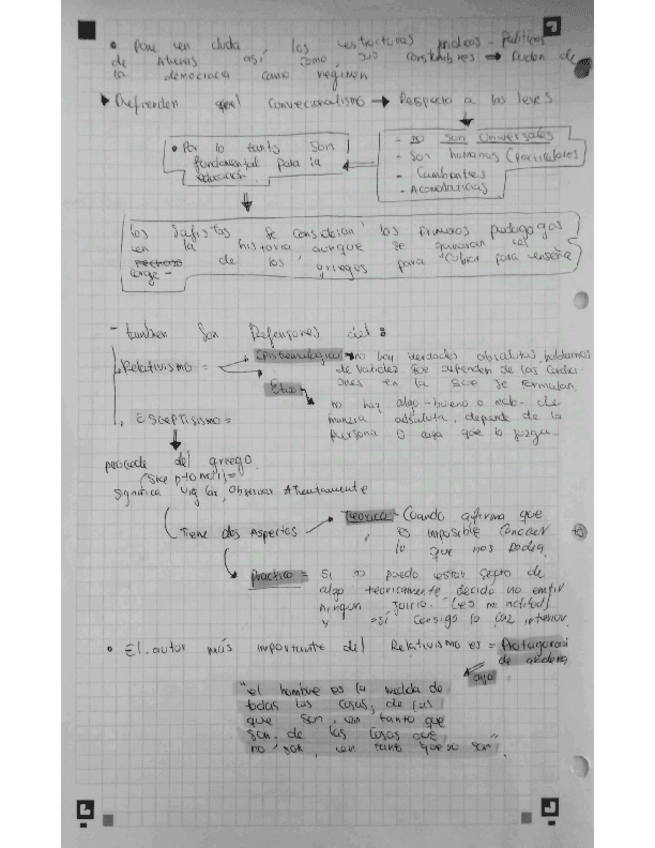 • Pone en duda, los estructuras jurídicas-Políticas
de Atenas así como, sus costumbres → Dudan de
la democracia como regimen
▶ Defienden el Convecionalismo → Respecto a los leyes
• Por lo tanto son
fundamental para la
educación.
- no son universales
- Son humanas (particulares)
- Cambiantes
- Acomodaticias
los Sofistas se consideran los primeros pedagogos
en la historia aunque se ganaran
de los griegos para "Cobrar para enseña
- tambien Son Defensores del:
. Relativismo =
Epistemologico → no hay verdades absolutas, hablamos
de validez que dependen de las condic
iones en la que se formulan.
Etico
no hay algo -bueno o malo- de
manera absoluta, depende de la
persona o cosa que lo juzgu-
. Esceptisismo =
procede del griego
(Skeptomai)=
significa vigilar, observar Atentamente
Tiene dos Aspectos
Teorico - Cuando afirma que
es imposible conocer
lo que nos rodea
Practico = Si no puedo estar segro de
algo teoricamente, decido no emitir
ningun juicio. (es mi actitud)
y así consigo la paz interior.
• El autor más importante del Relativismo es = Protagoras
de abdera
"el hombre es la medida de
todas las cosas, de las
que son, en tanto que
son, de las cosas que
no son, en tanto que no son"